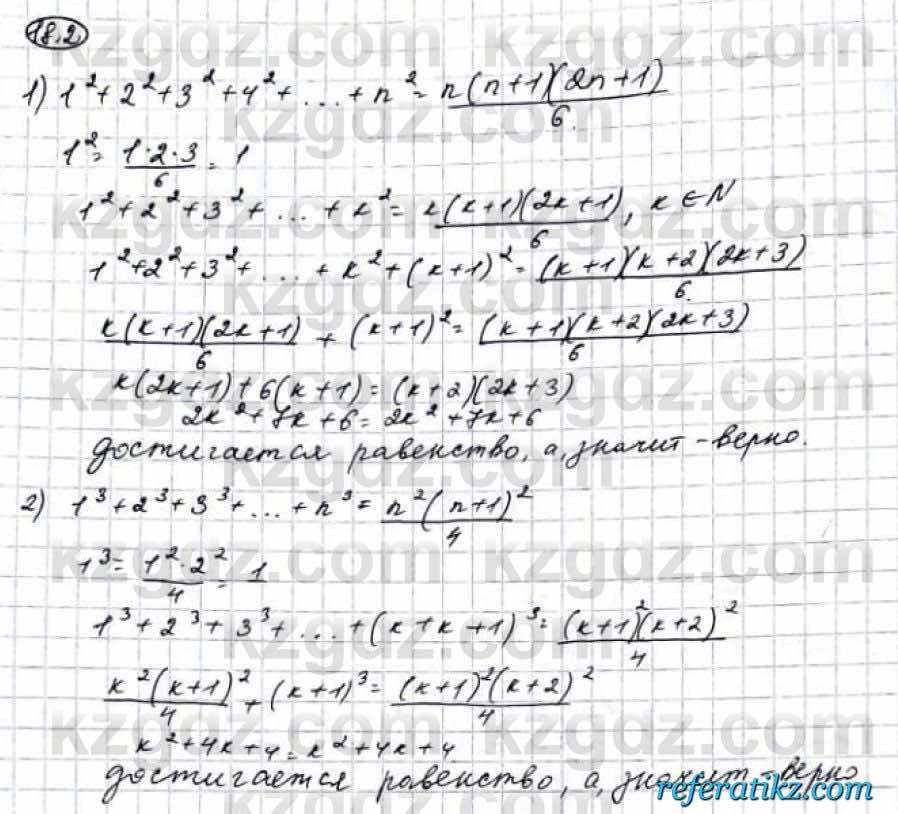 18.2
1) 1² + 2² + 3² + 4² + ... + n² = n(n+1)(2n+1)/6
1² = 1·2·3/6 = 1
1² + 2² + 3² + ... + k² = k(k+1)(2k+1)/6, k ∈ N
1² + 2² + 3² + ... + k² + (k+1)² = (k+1)(k+2)(2k+3)/6
k(k+1)(2k+1)/6 + (k+1)² = (k+1)(k+2)(2k+3)/6
k(2k+1) + 6(k+1) = (k+2)(2k+3)
2k² + 7k + 6 = 2k² + 7k + 6
достигается равенство, а, значит - верно.
2) 1³ + 2³ + 3³ + ... + n³ = n²(n+1)²/4
1³ = 1²·2²/4 = 1
1³ + 2³ + 3³ + ... + (k+k+1)³ = (k+1)²(k+2)²/4
k²(k+1)²/4 + (k+1)³ = (k+1)²(k+2)²/4
k² + 4k + 4 = k² + 4k + 4
достигается равенство, а, значит - верно
referatikz.com
kzgdz.com